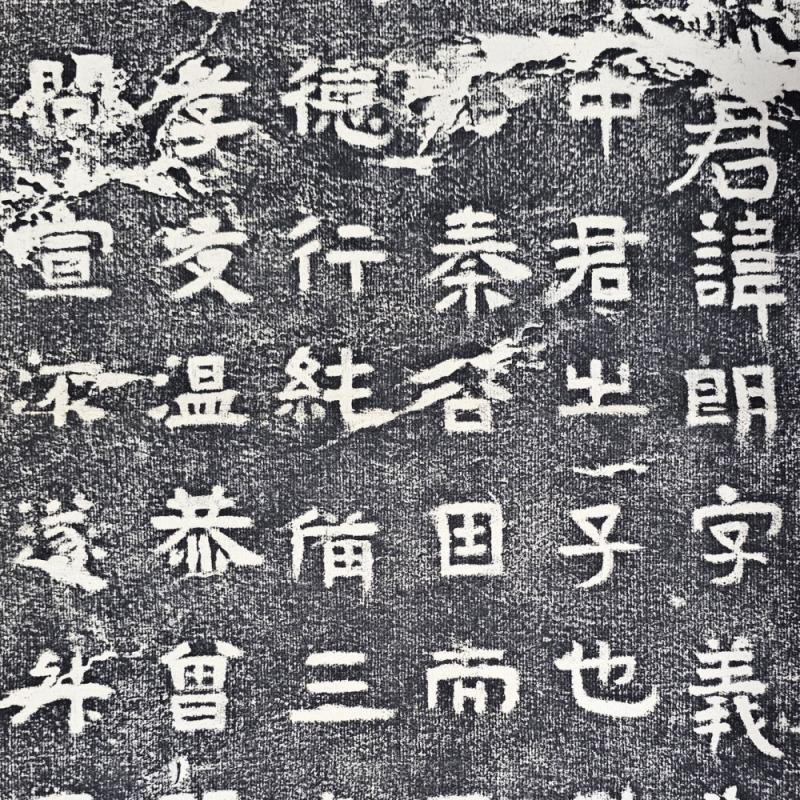 君諱朗字義
中君之子也
秦而
德行純備三
孝友温恭曾
問宣遂